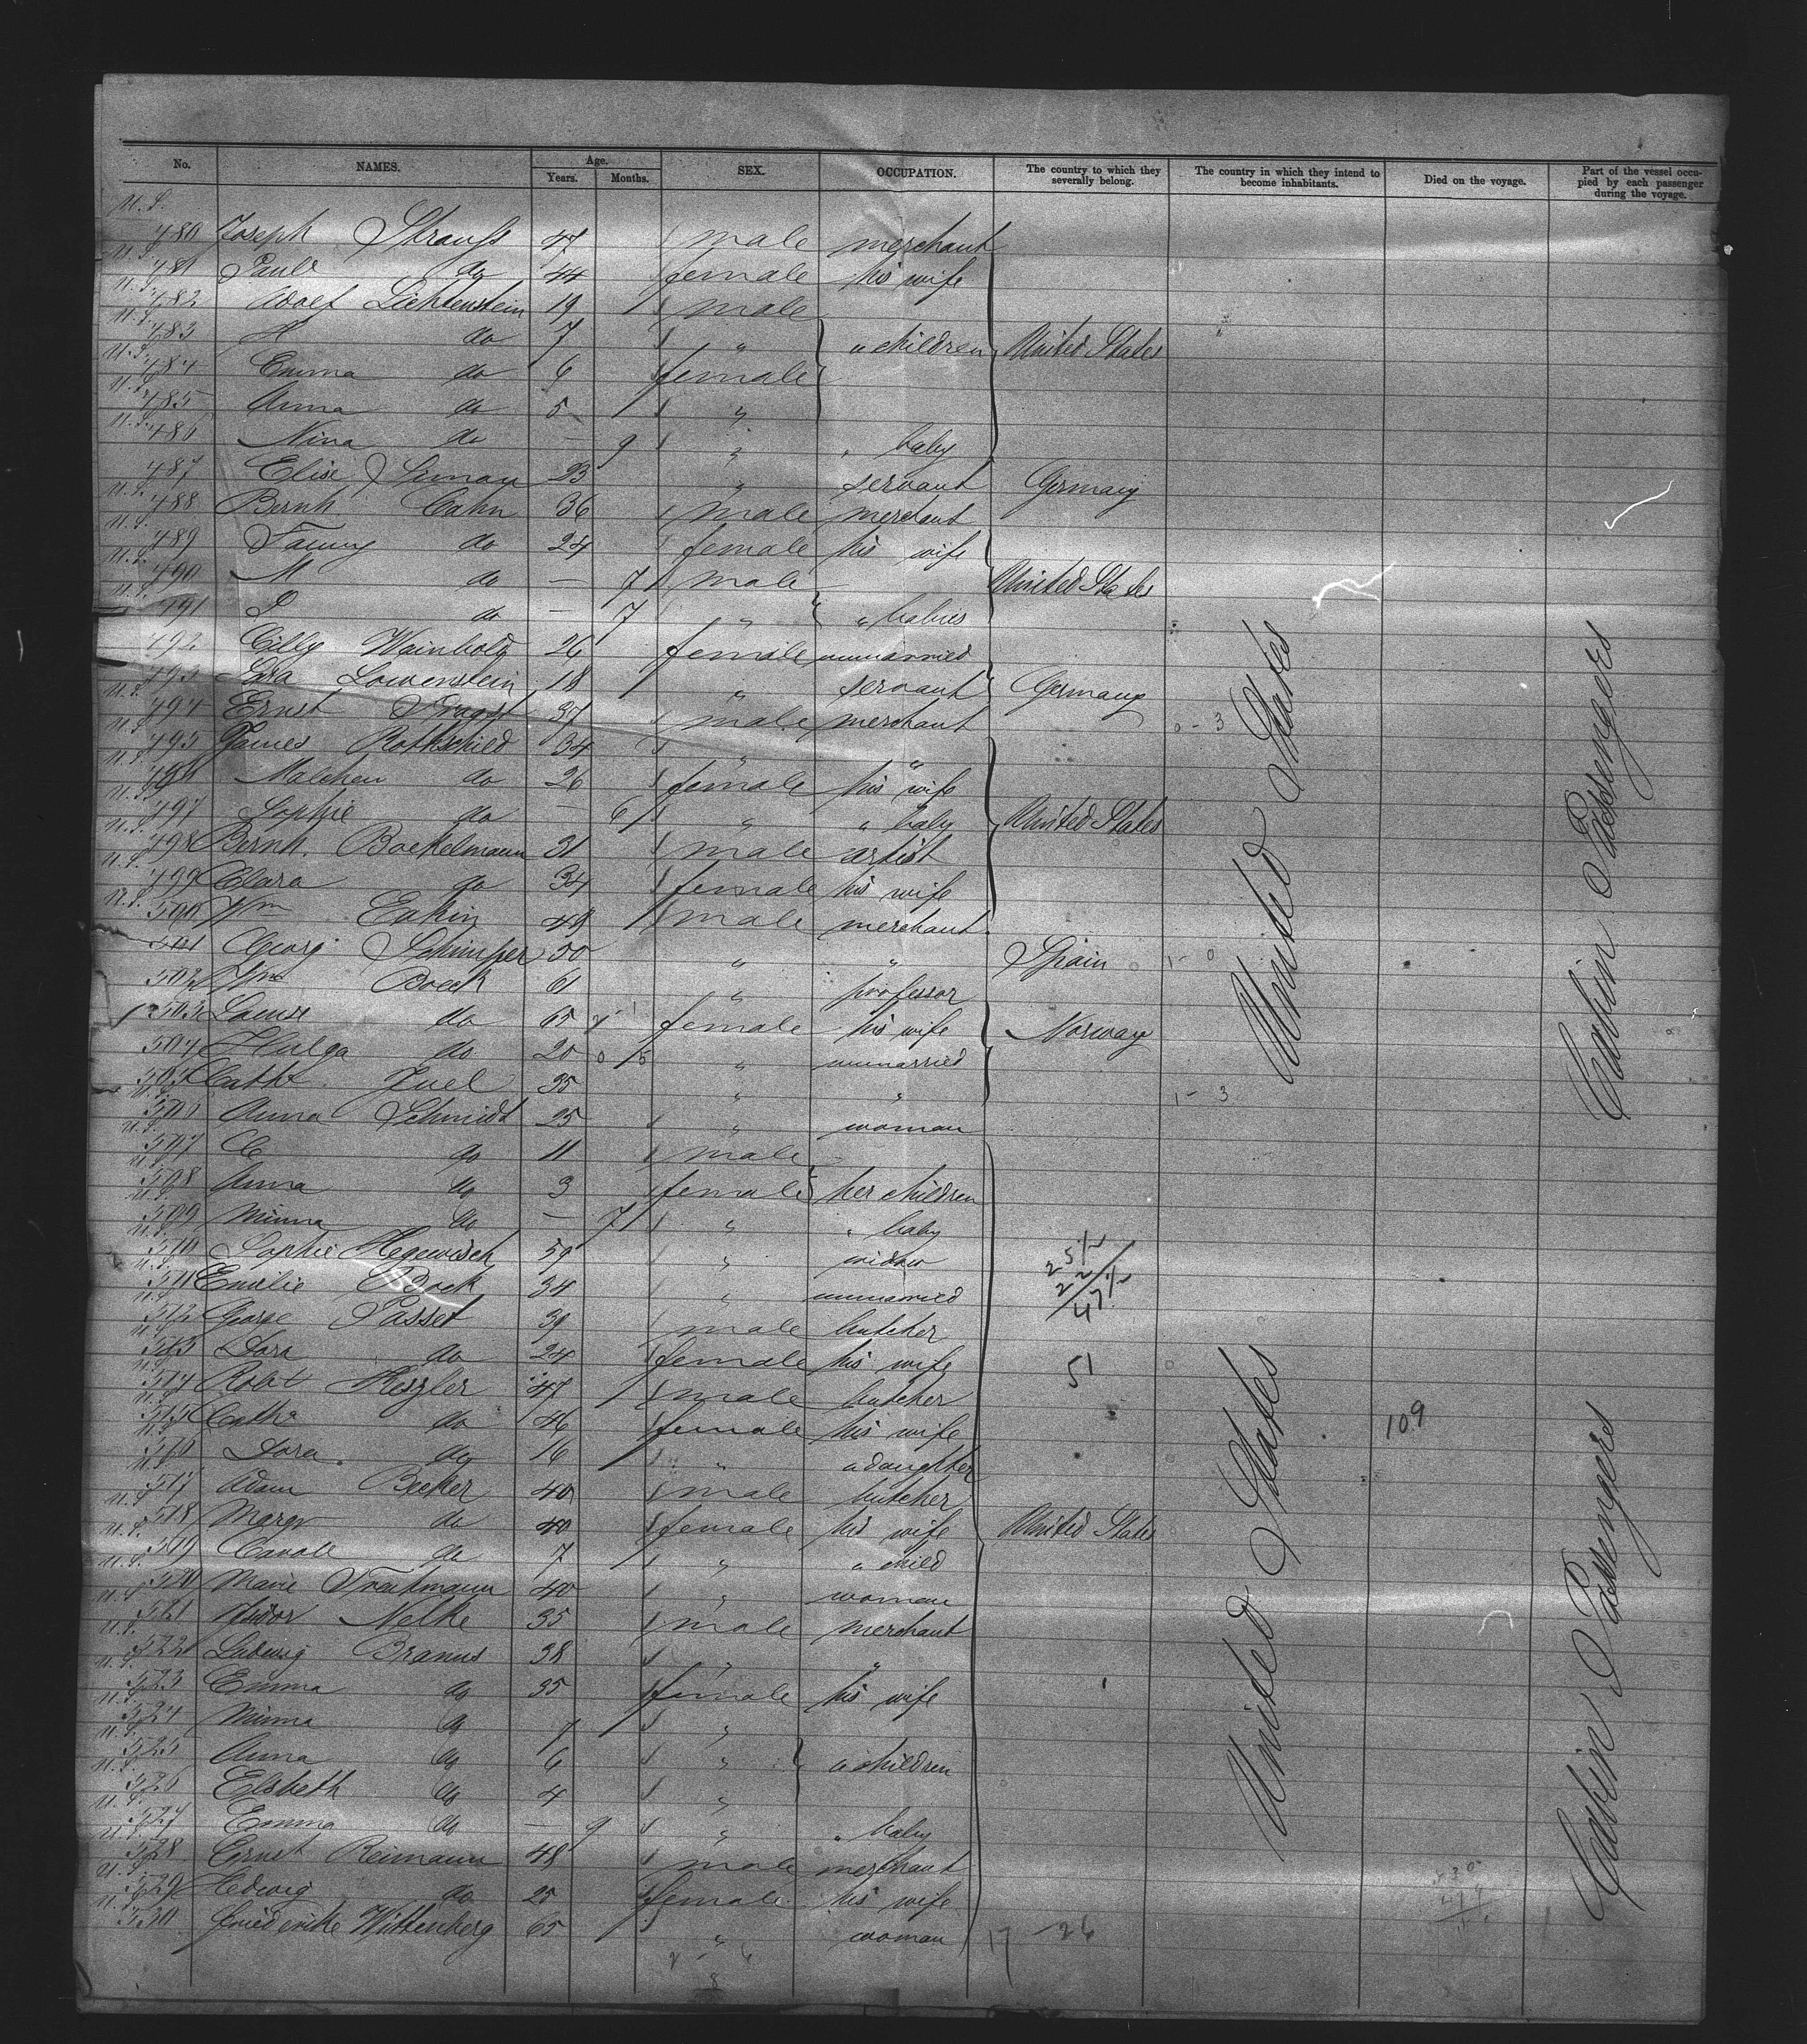 No. NAMES. Age. Years. Months. SEX. OCCUPATION. The country to which they severally belong. The country in which they intend to become inhabitants. Died on the voyage. Part of the vessel occupied by each passenger during the voyage.
U.S. 480 Joseph Strauss 47 male merchant
U.S. 481 do 44 female his wife
U.S. 482 Adolf Lichtenstein 19 male
U.S. 483 H do 7 " " children United States
U.S. 484 Emma do 6 female
U.S. 485 Anna do 5 "
U.S. 486 Nina do — 9 " " baby
487 Elise 23 " servant Germany
U.S. 488 Bernh. Cahn 36 male merchant
U.S. 489 Fanny do 24 female his wife
U.S. 490 M do — 7 male United States
U.S. 491 do — 7 " " babies
492 Cilly Wainhold 26 female unmarried
493 Lowenstein 18 " servant Germany
U.S. 494 Ernst male merchant 0-3
U.S. 495 James Rothschild 34 " "
U.S. 496 Malchen do 26 female his wife
U.S. 497 Sophie do — 6 " " baby United States
U.S. 498 Bernh. Boekelmann 31 male artist
U.S. 499 Clara do 34 female his wife
U.S. 500 Wm Eakin male merchant
501 Georg Schimper 50 " " Spain 1-0
502 Wm Boeck 61 " professor
503 Louise do 65 female his wife Norway
504 Hulga do 20 " unmarried
505 Cathe. Juel 35 " " 1-3
U.S. 506 Anna Schmidt 25 " woman
U.S. 507 do 11 male
U.S. 508 Anna do 3 female her children
U.S. 509 Minna do — 7 " " baby
U.S. 510 Sophie Hegewisch 59 " widow
U.S. 511 Emilie Bock 34 " unmarried
U.S. 512 George Passet 39 male butcher
U.S. 513 Dora do 24 female his wife 51
U.S. 514 Robt Keszler 47 male butcher
U.S. 515 Cathe do 46 female his wife 109
U.S. 516 Dora do 16 " " daughter
517 Adam Becker 40 male butcher
U.S. 518 Margr do 40 female his wife United States
U.S. 519 do 7 " " child
U.S. 520 Marie Trautmann 40 " woman
U.S. 521 Isidor Nelke 35 male merchant
U.S. 522 Ludwig Branus 38 " "
U.S. 523 Emma do 35 female his wife
U.S. 524 Minna do 7 "
U.S. 525 Anna do 6 " " children
U.S. 526 Elsbeth do 4 "
U.S. 527 Emma do — 9 " " baby
U.S. 528 Ernst Reimann 48 male merchant
U.S. 529 Hedwig do 25 female his wife
U.S. 530 Friederike Wittenberg 65 " woman 17 - 26
United States
Cabin Passengers
United States
Cabin Passengers